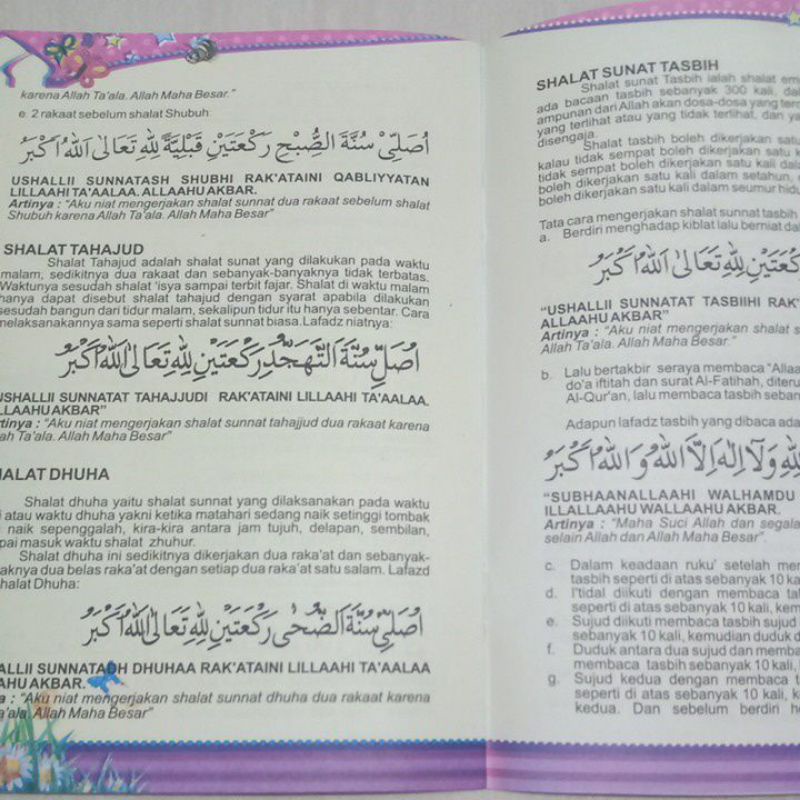 karena Allah Ta'ala. Allah Maha Besar."
e. 2 rakaat sebelum shalat Shubuh:
اُصَلِّيْ سُنَّةَ الصُّبْحِ رَكْعَتَيْنِ قَبْلِيَّةً لِلّٰهِ تَعَالٰى اَللهُ اَكْبَرُ
USHALLII SUNNATASH SHUBHI RAK'ATAINI QABLIYYATAN
LILLAAHI TA'AALAA. ALLAAHU AKBAR.
Artinya : "Aku niat mengerjakan shalat sunnat dua rakaat sebelum shalat
Shubuh karena Allah Ta'ala. Allah Maha Besar"
SHALAT TAHAJUD
Shalat Tahajud adalah shalat sunat yang dilakukan pada waktu
malam, sedikitnya dua rakaat dan sebanyak-banyaknya tidak terbatas.
Waktunya sesudah shalat 'isya sampai terbit fajar. Shalat di waktu malam
hanya dapat disebut shalat tahajud dengan syarat apabila dilakukan
sesudah bangun dari tidur malam, sekalipun tidur itu hanya sebentar. Cara
melaksanakannya sama seperti shalat sunnat biasa. Lafadz niatnya:
اُصَلِّيْ سُنَّةَ التَّهَجُّدِ رَكْعَتَيْنِ لِلّٰهِ تَعَالٰى اَللهُ اَكْبَرُ
USHALLII SUNNATAT TAHAJJUDI RAK'ATAINI LILLAAHI TA'AALAA.
LLAAHU AKBAR"
rtinya : "Aku niat mengerjakan shalat sunnat tahajjud dua rakaat karena
ah Ta'ala. Allah Maha Besar"
HALAT DHUHA
Shalat dhuha yaitu shalat sunnat yang dilaksanakan pada waktu
i atau waktu dhuha yakni ketika matahari sedang naik setinggi tombak
naik sepenggalah, kira-kira antara jam tujuh, delapan, sembilan,
pai masuk waktu shalat zhuhur.
Shalat dhuha ini sedikitnya dikerjakan dua raka'at dan sebanyak-
aknya dua belas raka'at dengan setiap dua raka'at satu salam. Lafazd
shalat Dhuha:
اُصَلِّيْ سُنَّةَ الضُّحٰى رَكْعَتَيْنِ لِلّٰهِ تَعَالٰى اَللهُ اَكْبَرُ
ALLII SUNNATADH DHUHAA RAK'ATAINI LILLAAHI TA'AALAA
AHU AKBAR.
a : "Aku niat mengerjakan shalat sunnat dhuha dua rakaat karena
a'ala. Allah Maha Besar"
SHALAT SUNAT TASBIH
Shalat sunat Tasbih ialah shalat em
ada bacaan tasbih sebanyak 300 kali, da
ampunan dari Allah akan dosa-dosa yang
yang terlihat atau yang tidak terlihat, dan
disengaja.
Shalat tasbih boleh dikerjakan satu
kalau tidak sempat boleh dikerjakan satu k
tidak sempat boleh dikerjakan satu kali dal
boleh dikerjakan satu kali dalam setahun,
boleh dikerjakan satu kali dalam seumur hid
Tata cara mengerjakan shalat sunnat tasbih
a. Berdiri menghadap kiblat lalu berniat dal
رَكْعَتَيْنِ لِلّٰهِ تَعَالٰى اَللهُ اَكْبَرُ
"USHALLII SUNNATAT TASBIIHI RAK'
ALLAAHU AKBAR"
Artinya : "Aku niat mengerjakan shalat s
Allah Ta'ala. Allah Maha Besar."
b. Lalu bertakbir seraya membaca "Allaa
do'a iftitah dan surat Al-Fatihah, diteru
Al-Qur'an, lalu membaca tasbih seban
Adapun lafadz tasbih yang dibaca ada
لِلّٰهِ وَلَا اِلٰهَ اِلَّا اللهُ وَاللهُ اَكْبَرُ
"SUBHAANALLAAHI WALHAMDU
ILLALLAAHU WALLAAHU AKBAR.
Artinya : "Maha Suci Allah dan segala
selain Allah dan Allah Maha Besar".
c. Dalam keadaan ruku' setelah mem
tasbih seperti di atas sebanyak 10 ka
d. I'tidal diikuti dengan membaca ta
seperti di atas sebanyak 10 kali, kem
e. Sujud diikuti membaca tasbih sujud
sebanyak 10 kali, kemudian duduk d
f. Duduk antara dua sujud dan memba
membaca tasbih sebanyak 10 kali,
g. Sujud kedua dengan membaca t
seperti di atas sebanyak 10 kali, k
kedua. Dan sebelum berdiri h